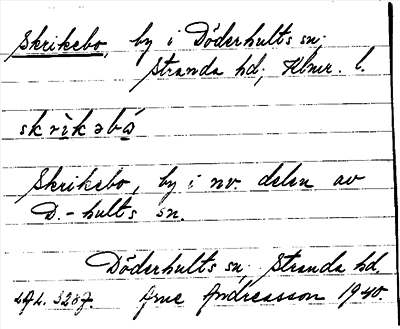 Skrikebo, by i Döderhults sn;
Stranda hd; Klmr. l.
skrìkəbó
Skrikebo, by i nv. delen av
D.-hults sn.
Döderhults sn, Stranda hd.
Arne Andreasson 1940.